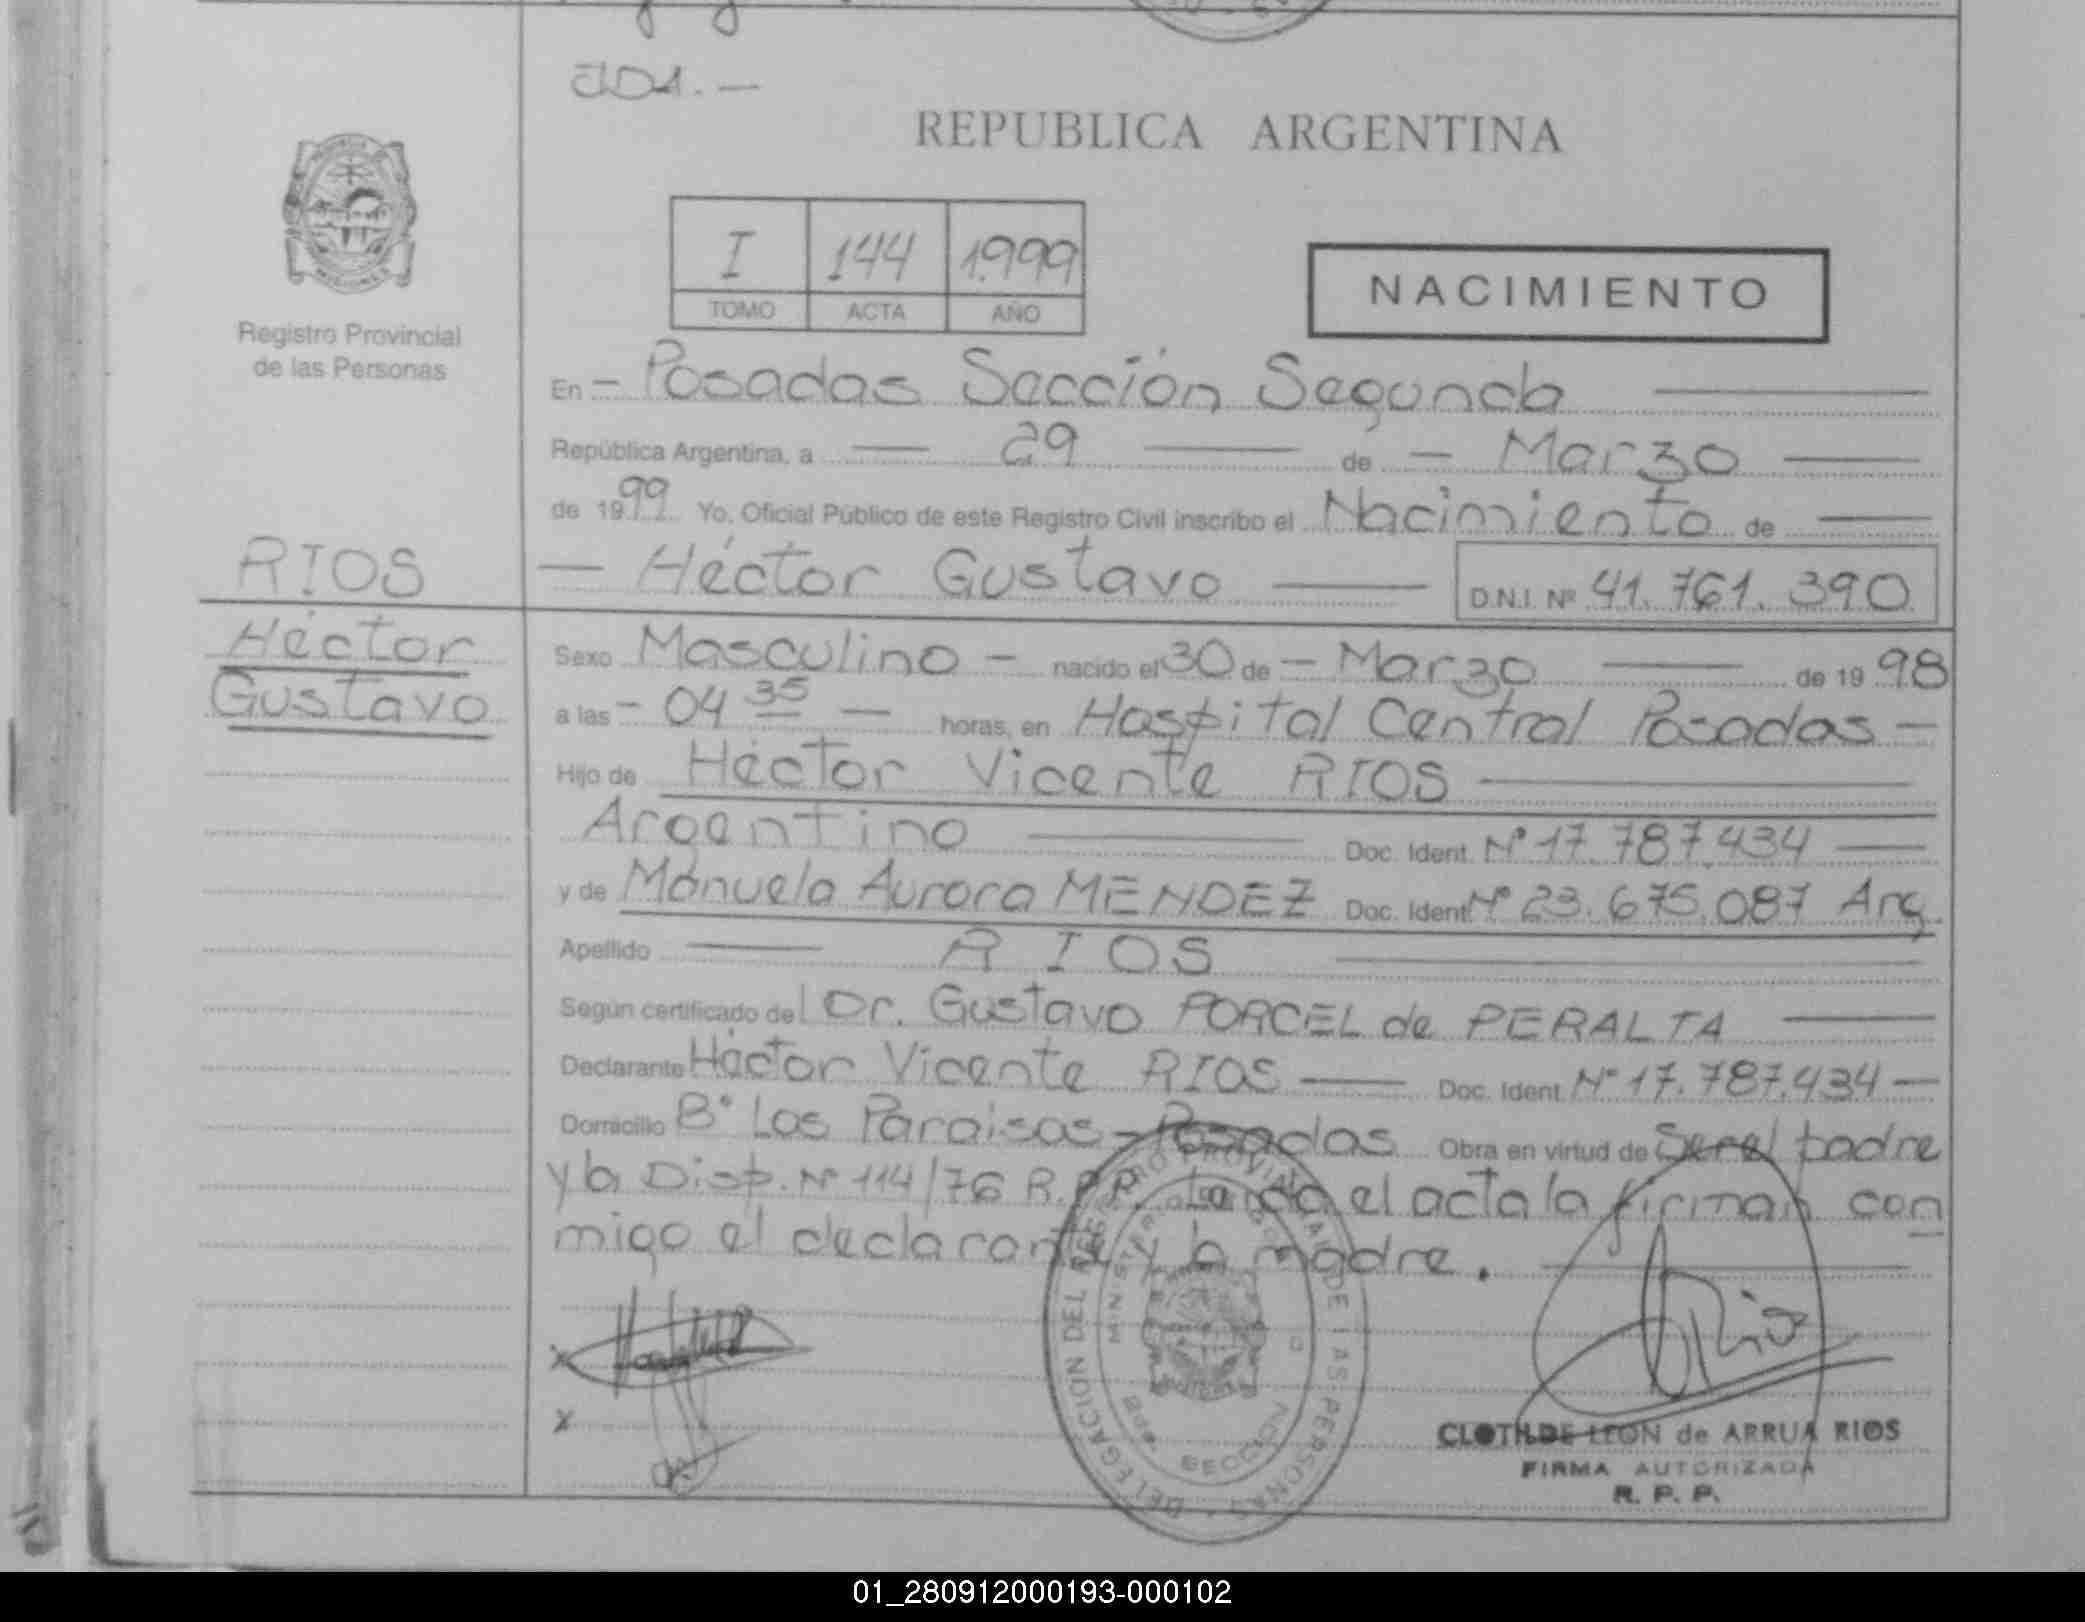 JD1.—
REPUBLICA ARGENTINA
I 144 1.999
TOMO ACTA AÑO
NACIMIENTO
Registro Provincial
de las Personas
En – Posadas Sección Segunda
República Argentina, a — 29 — de – Marzo —
de 1999 Yo, Oficial Público de este Registro Civil inscribo el Nacimiento de —
— Héctor Gustavo — D.N.I. Nº 41.761.390
RIOS
Héctor
Gustavo
Sexo Masculino – nacido el 30 de – Marzo — de 1998
a las – 04 35 — horas, en Hospital Central Posadas –
Hijo de Héctor Vicente RIOS —
Argentino — Doc. Ident. Nº 17.787.434 —
y de Manuela Aurora MENDEZ Doc. Ident. Nº 23.675.087 Arg.
Apellido — RIOS —
Según certificado del Dr. Gustavo PORCEL de PERALTA —
Declarante Héctor Vicente RIOS — Doc. Ident. Nº 17.787.434 —
Domicilio Bº Los Paraisos – Posadas Obra en virtud de Ser el padre
y la Disp. Nº 114/76 R.P.P. Leida el acta la firman con
migo el declarante y la madre. —
x
x
DELEGACION DEL REGISTRO PROVINCIAL DE LAS PERSONAS
SECCION
Rios
CLOTILDE LEON de ARRUA RIOS
FIRMA AUTORIZADA
R. P. P.
01_280912000193-000102